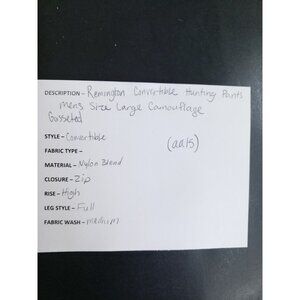 DESCRIPTION – Remington Convertible Hunting Pants
mens Size Large Camouflage
Gusseted
STYLE – Convertible
(aa15)
FABRIC TYPE –
MATERIAL – Nylon Blend
CLOSURE – Zip
RISE – High
LEG STYLE – Full
FABRIC WASH – medium